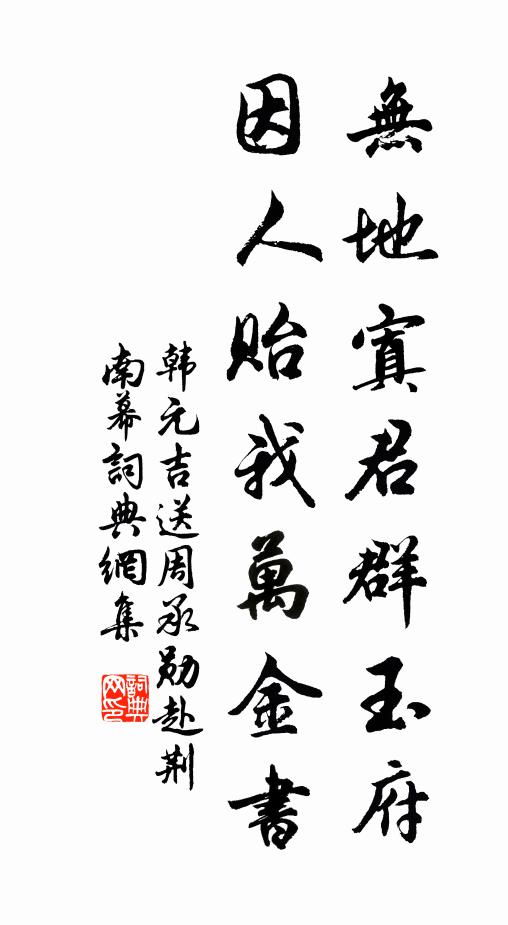 無地寘君群玉府
因人貽我萬金書
韩元吉送周承勋赴荆
南幕詞典網集
詞典网印